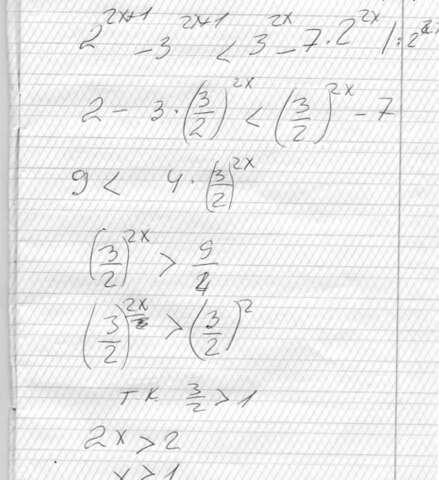 2^{2x+1} - 3^{2x+1} < 3^{2x} - 7 · 2^{2x} | : 2^{2x}
2 - 3 · (3/2)^{2x} < (3/2)^{2x} - 7
9 < 4 · (3/2)^{2x}
(3/2)^{2x} > 9/4
(3/2)^{2x} > (3/2)^2
т.к. 3/2 > 1
2x > 2
x > 1